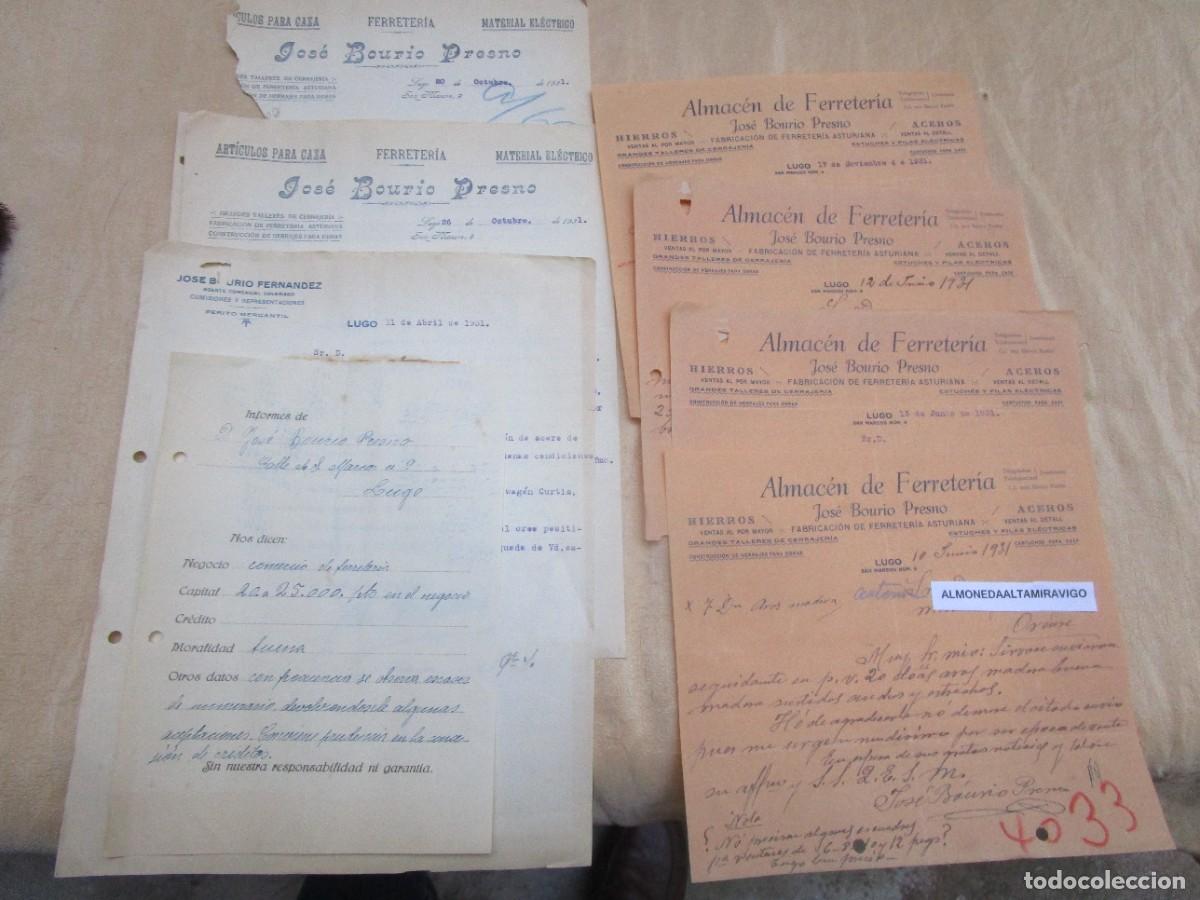 ÍCULOS PARA CAZA
FERRETERÍA
MATERIAL ELÉCTRICO
José Bourio Presno
DES TALLERES DE CERRAJERÍA
IÓN DE FERRETERÍA ASTURIANA
N DE HERRAJES PARA OBRAS
Lugo 20 de Octubre. de 1931.
ARTÍCULOS PARA CAZA
FERRETERÍA
MATERIAL ELÉCTRICO
José Bourio Presno
GRANDES TALLERES DE CERRAJERÍA
FABRICACIÓN DE FERRETERÍA ASTURIANA
CONSTRUCCIÓN DE HERRAJES PARA OBRAS
Lugo 26 de Octubre. de 1931.
JOSE B URIO FERNANDEZ
AGENTE COMERCIAL COLEGIADO
COMISIONES Y REPRESENTACIONES
PERITO MERCANTIL
LUGO 21 de Abril de 1931.
Sr. D.
ón de acero de
enas condiciones
wagón Curtis,
l cree positi-
queda de Vd, su-
Informes de
D José Bourio Presno
Calle de S. Marcos nº 9
Lugo
Nos dicen:
Negocio comercio de ferretería
Capital 20 a 25.000. pts en el negocio
Crédito
Moralidad buena
Otros datos con frecuencia se observa escasez
de numerario devolviendosele algunas
aceptaciones. Conviene prudencia en la conce-
sión de créditos.
Sin nuestra responsabilidad ni garantía.
Almacén de Ferretería
José Bourio Presno
HIERROS
VENTAS AL POR MAYOR
FABRICACIÓN DE FERRETERÍA ASTURIANA
ACEROS
VENTAS AL DETALL
GRANDES TALLERES DE CERRAJERÍA
ESTUCHES Y PILAS ELÉCTRICAS
CONSTRUCCIÓN DE HERRAJES PARA OBRAS
CARTUCHOS PARA CAZA
LUGO 17 de Noviembre de 1931.
SAN MARCOS NÚM. 9
Almacén de Ferretería
José Bourio Presno
HIERROS
VENTAS AL POR MAYOR
FABRICACIÓN DE FERRETERÍA ASTURIANA
ACEROS
VENTAS AL DETALL
GRANDES TALLERES DE CERRAJERÍA
ESTUCHES Y PILAS ELÉCTRICAS
CONSTRUCCIÓN DE HERRAJES PARA OBRAS
CARTUCHOS PARA CAZA
LUGO 12 de Junio 1931
SAN MARCOS NÚM. 9
Almacén de Ferretería
José Bourio Presno
HIERROS
VENTAS AL POR MAYOR
FABRICACIÓN DE FERRETERÍA ASTURIANA
ACEROS
VENTAS AL DETALL
GRANDES TALLERES DE CERRAJERÍA
ESTUCHES Y PILAS ELÉCTRICAS
CONSTRUCCIÓN DE HERRAJES PARA OBRAS
CARTUCHOS PARA CAZA
LUGO 15 de Junio de 1931.
SAN MARCOS NÚM. 9
Sr.D.
Almacén de Ferretería
José Bourio Presno
HIERROS
VENTAS AL POR MAYOR
FABRICACIÓN DE FERRETERÍA ASTURIANA
ACEROS
VENTAS AL DETALL
GRANDES TALLERES DE CERRAJERÍA
ESTUCHES Y PILAS ELÉCTRICAS
CONSTRUCCIÓN DE HERRAJES PARA OBRAS
CARTUCHOS PARA CAZA
LUGO 10 Junio 1931
SAN MARCOS NÚM. 9
x 7 Dn Aros madera
Antonio
ALMONEDAALTAMIRAVIGO
Orense
Muy Sr. mio: Sirvase enviarme
seguidamente en p. v. 20 doas aros madera buena
madera surtidos anchos y estrechos.
Hé de agradecerle nó demore el citado envio
pues me urgen muchisimo por ser epoca de venta
En espera de sus gratas noticias y talon
su affmo y S. S. Q. E. S. M.
José Bourio Presno
4033
Nota
¿ Nó precisan algunas
pa ventanas de 6- 8- 10 y 12 pegs?
Tengo buen precio-
todocoleccion